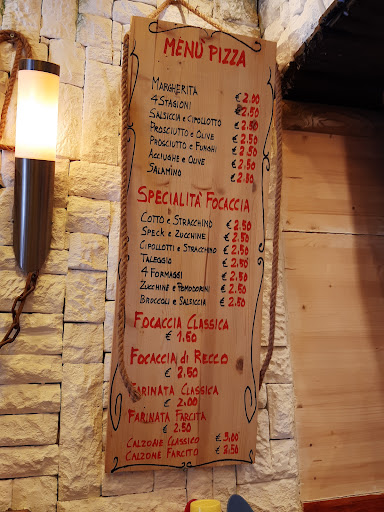 MENÙ PIZZA
MARGHERITA € 2.00
4 STAGIONI € 2.50
SALSICCIA e CIPOLLOTTO € 2.50
PROSCIUTTO e OLIVE € 2.50
PROSCIUTTO e FUNGHI € 2.50
ACCIUGHE e OLIVE € 2.50
SALAMINO € 2.50
SPECIALITÀ FOCACCIA
COTTO e STRACCHINO € 2.50
SPECK e ZUCCHINE € 2.50
CIPOLLOTTI e STRACCHINO € 2.50
TALEGGIO € 2.50
4 FORMAGGI € 2.50
ZUCCHINE e POMODORINI € 2.50
BROCCOLI e SALSICCIA € 2.50
FOCACCIA CLASSICA
€ 1.50
FOCACCIA di RECCO
€ 2.50
FARINATA CLASSICA
€ 2.00
FARINATA FARCITA
€ 2.50
CALZONE CLASSICO € 3,00
CALZONE FARCITO € 3.50